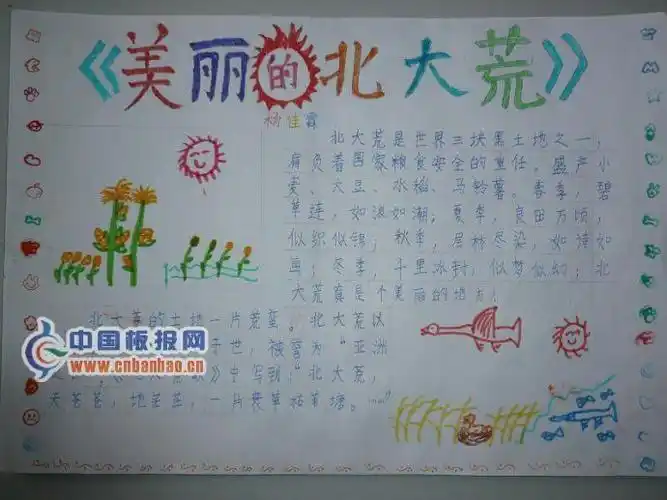 《美丽的北大荒》
杨佳霖
北大荒是世界三块黑土地之一，
肩负着国家粮食安全的重任。盛产小
麦、大豆、水稻、马铃薯。春季，碧
草连，如浪如潮；夏季，良田万顷，
似织似锦；秋季，层林尽染，如诗如
画；冬季，千里冰封，似梦似幻；北
大荒真是个美丽的地方！
北大荒的土地一片荒蛮。北大荒以
于世，被誉为“亚洲
中国板报网
www.cnbanbao.cn
中写到，“北大荒，
天苍苍，地茫茫，一片衰草枯苇塘。”